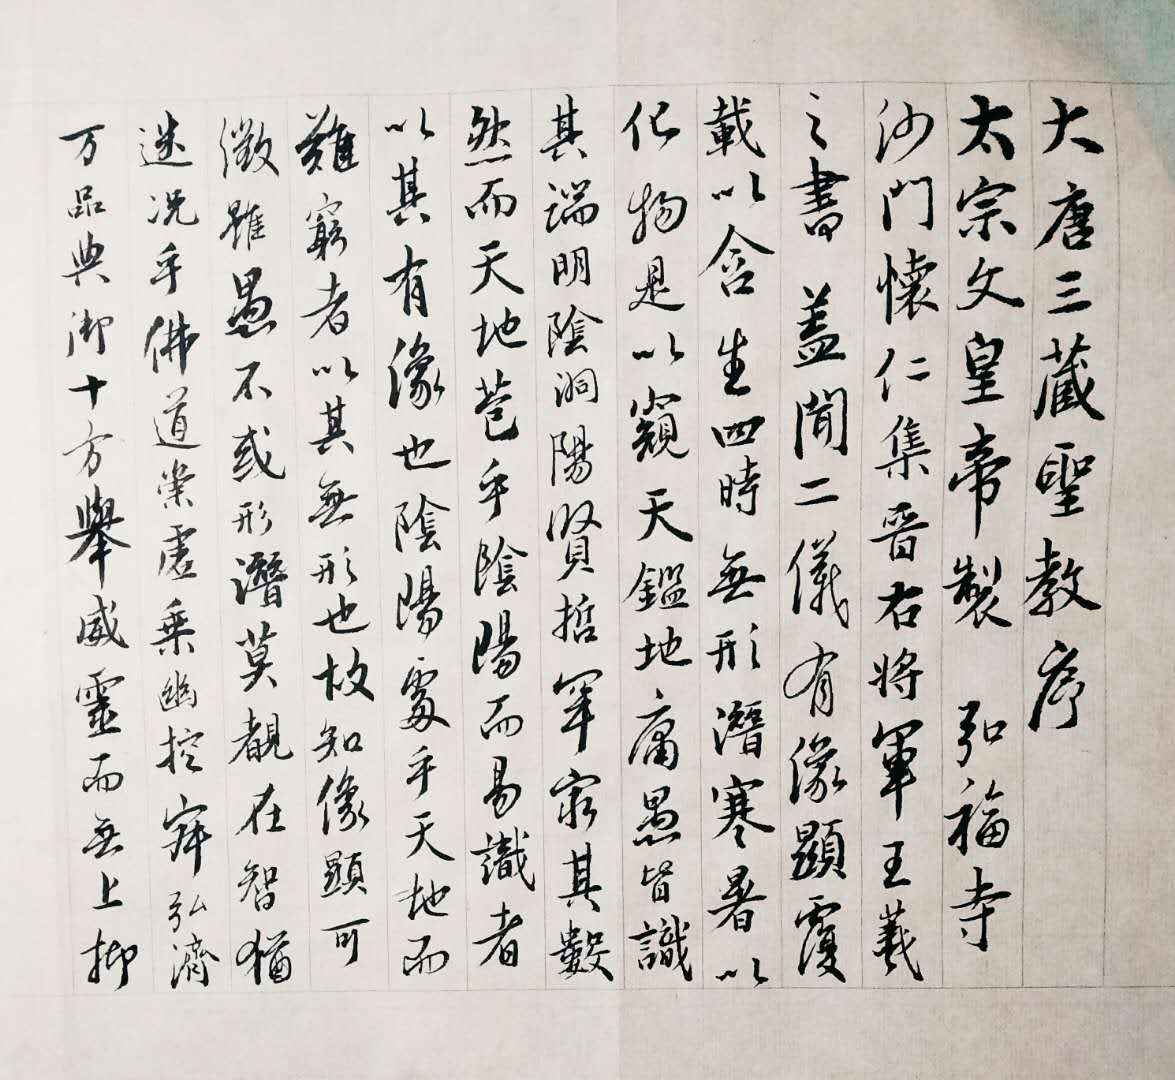 大唐三藏聖教序
太宗文皇帝製 弘福寺
沙門懷仁集晉右將軍王羲
之書 蓋聞二儀有像顯覆
載以含生四時無形潛寒暑以
化物是以窺天鑑地庸愚皆識
其端明陰洞陽賢哲罕窮其數
然而天地苞乎陰陽而易識者
以其有像也陰陽處乎天地而
難窮者以其無形也故知像顯可
徵雖愚不惑形潛莫覩在智猶
迷況乎佛道崇虛乘幽控寂弘濟
万品典御十方舉威靈而無上抑